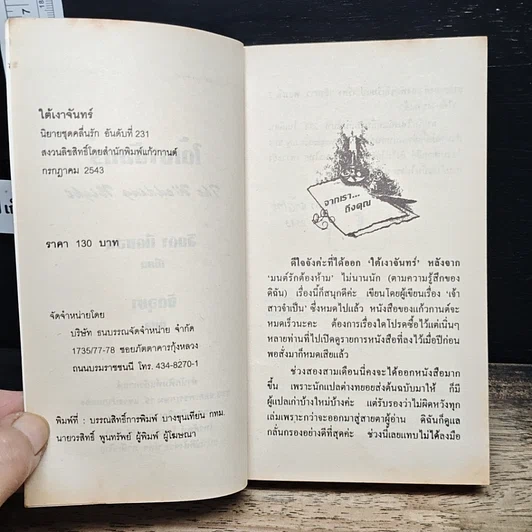 ใต้เงาจันทร์
นิยายชุดคลื่นรัก อันดับที่ 231
สงวนลิขสิทธิ์โดยสำนักพิมพ์แก้วกานต์
กรกฎาคม 2543
ราคา 130 บาท
จัดจำหน่ายโดย
บริษัท ธนบรรณจัดจำหน่าย จำกัด
1735/77-78 ซอยภัตตาคารกุ้งหลวง
ถนนบรมราชชนนี โทร. 434-8270-1
พิมพ์ที่ : บรรณสิทธิ์การพิมพ์ บางขุนเทียน กทม.
นายวรสิทธิ์ พูนทรัพย์ ผู้พิมพ์ ผู้โฆษณา
จากเรา...
ถึงคุณ
ดีใจจังค่ะที่ได้ออก 'ใต้เงาจันทร์' หลังจาก
'มนต์รักต้องห้าม' ไม่นานนัก (ตามความรู้สึกของ
ดิฉัน) เรื่องนี้ก็สนุกดีค่ะ เขียนโดยผู้เขียนเรื่อง 'เจ้า
สาวจำเป็น' ซึ่งหมดไปแล้ว หนังสือของแก้วกานต์จะ
หมดเร็วนะคะ ต้องการเรื่องใดโปรดซื้อไว้แต่เนิ่นๆ
หลายท่านที่ไปเปิดดูรายการหนังสือที่ลงไว้เมื่อปีก่อน
พอสั่งมาก็หมดเสียแล้ว
ช่วงสองสามเดือนนี้คงจะได้ออกหนังสือมาก
ขึ้น เพราะนักแปลต่างทยอยส่งต้นฉบับมาให้ ก็มี
ผู้แปลเก่าบ้างใหม่บ้างค่ะ แต่รับรองว่าไม่ผิดหวังทุก
เล่มเพราะกว่าจะออกมาสู่สายตาผู้อ่าน ดิฉันก็ดูแล
กลั่นกรองอย่างดีที่สุดค่ะ ช่วงนี้เลยแทบไม่ได้ลงมือ